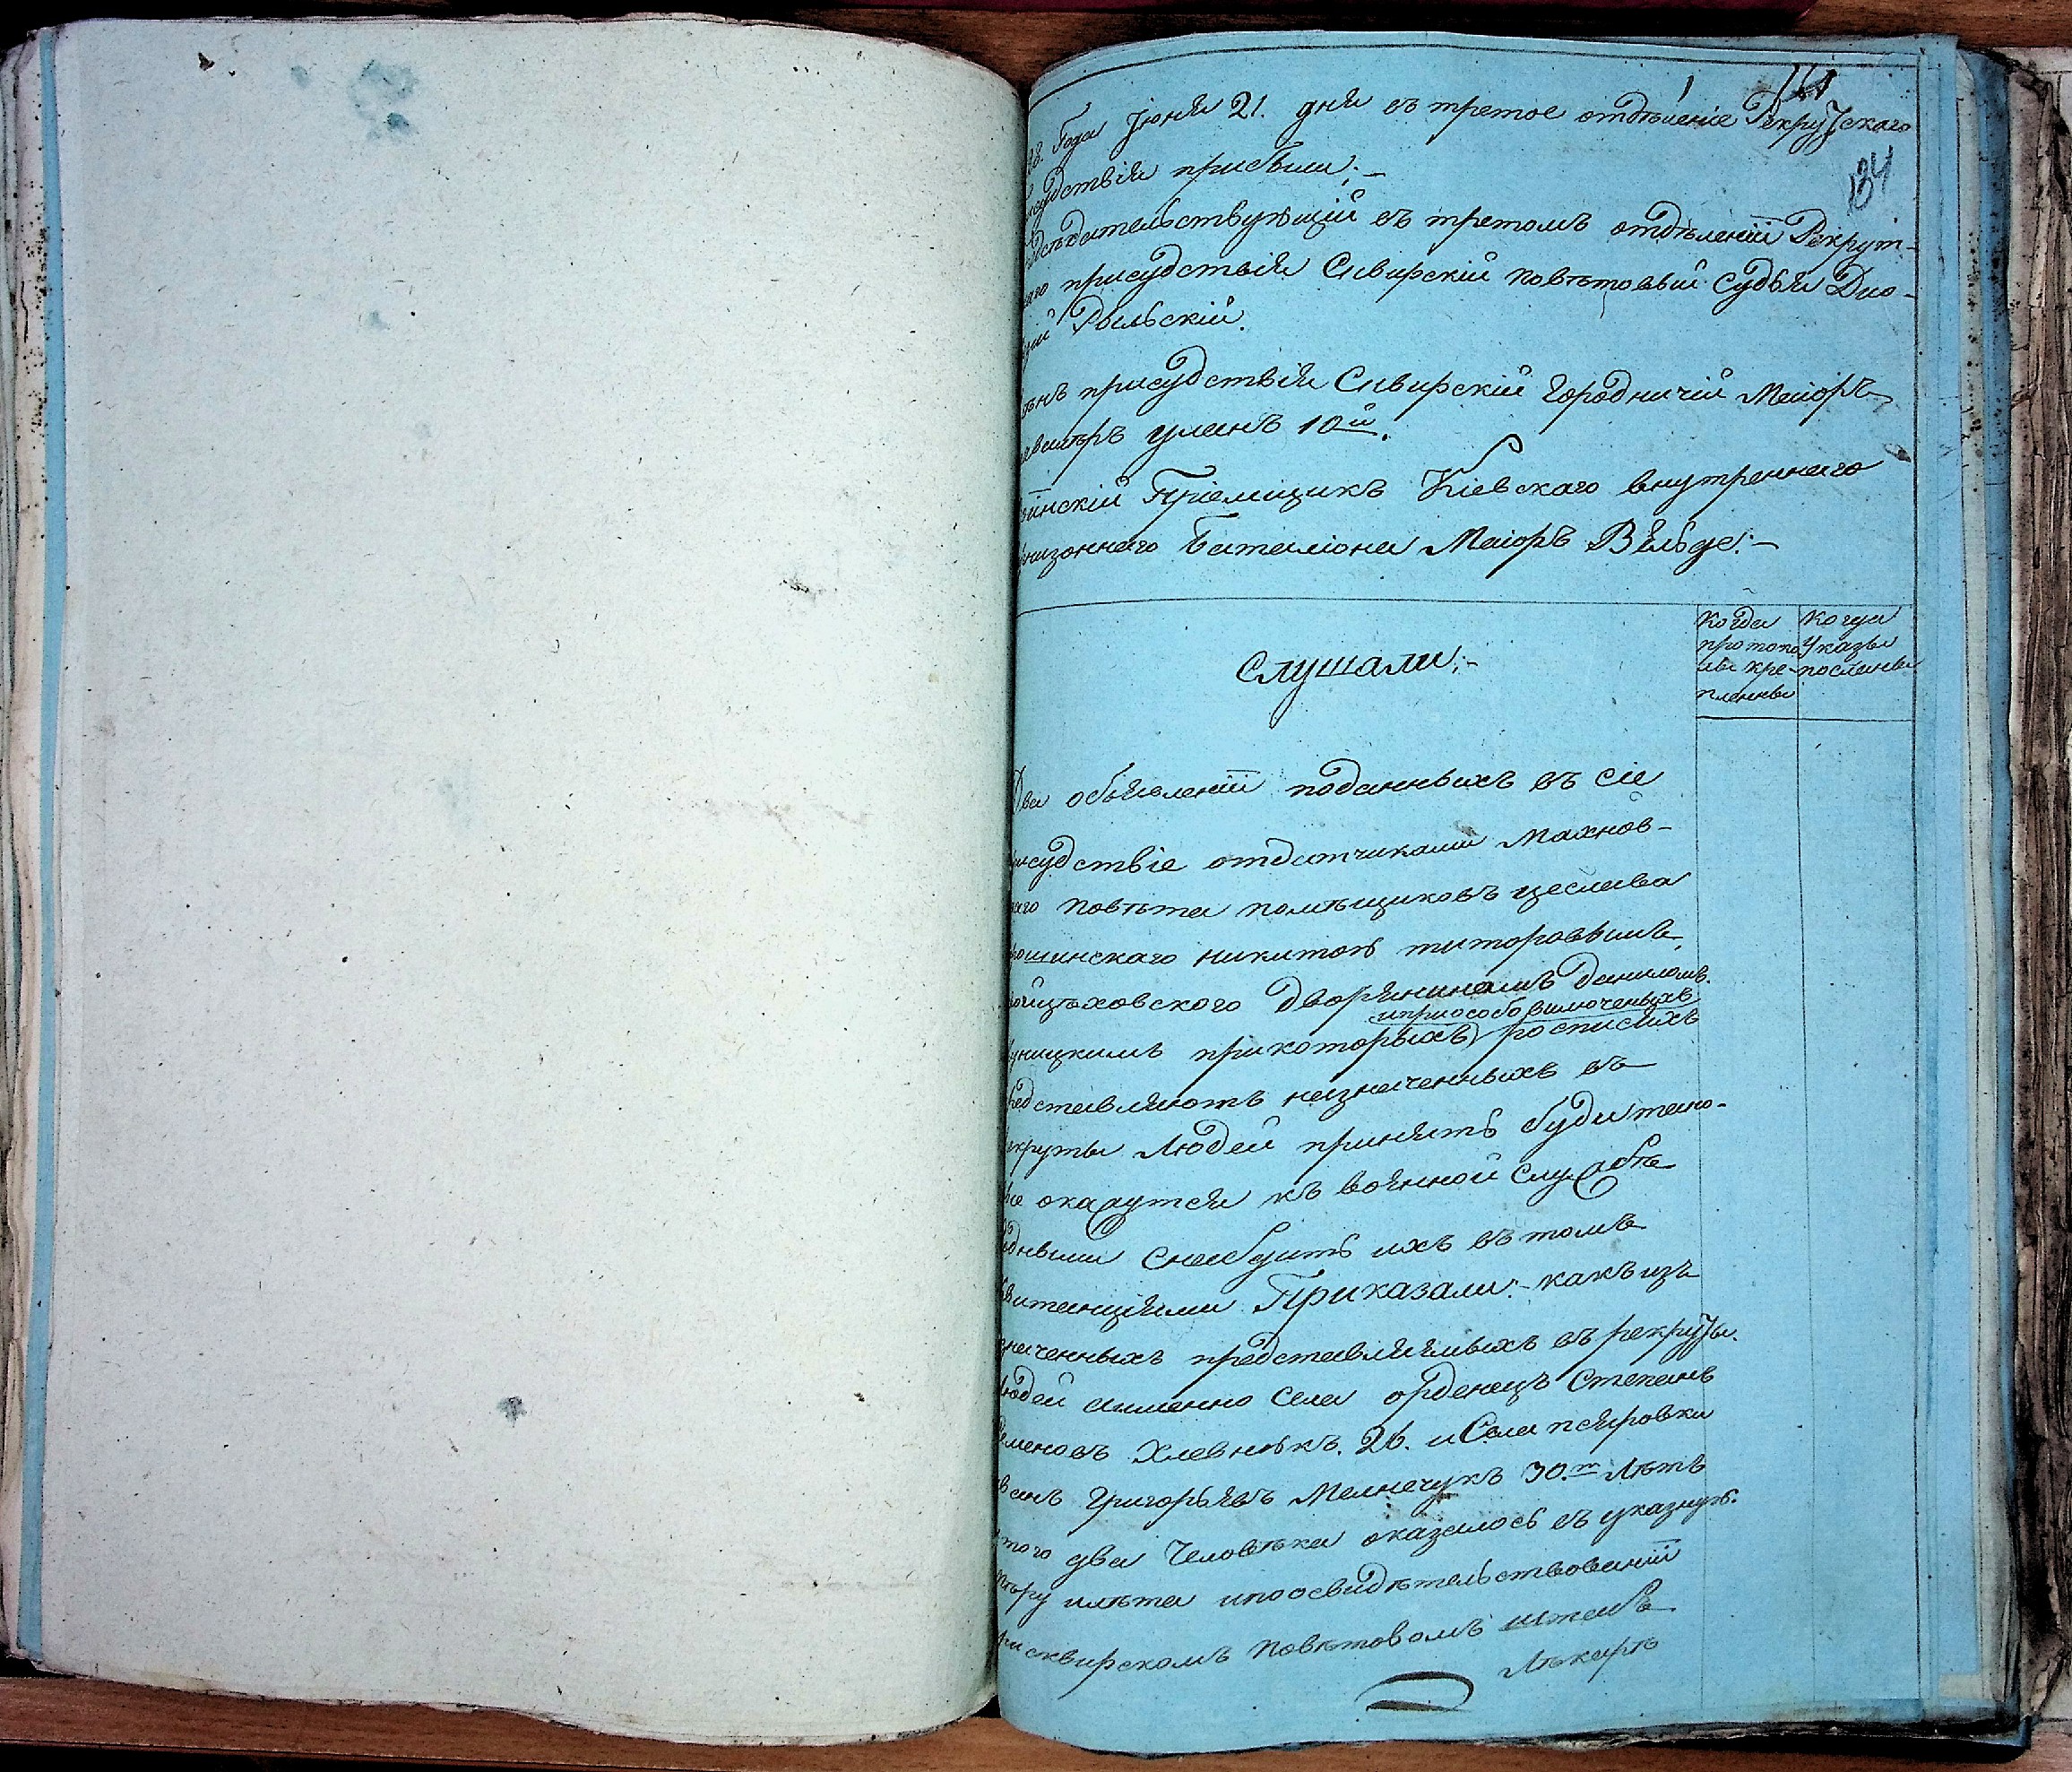 Года Июня 21. дня въ третое отдѣленіе Рекрутскаго
присудствія прибыли:-
184
предсѣдательствующій въ третомъ отдѣленіи Рекрут-
скаго присудствія Сквирскій повѣтовый Судья Дио-
Рыльскій.
присудствія Сквирскій Городничій Маіоръ
Кавалѣръ Уланъ 10й.
воинскій Пріемщикъ Кіевскаго внутреннаго
гарнизоннаго Баталіона Маіоръ Вяльде:-
Слушали:-
Когда
протоко
лы кре-
пленны
Когда
Указы
посланы
Два объявленіи поданныхъ въ сіе
присудствіе отдатчиками Махнов-
скаго повѣта помѣщиковъ
Никитою
Дворяниномъ Даниломъ
и при особо включеныхъ
при которыхъ росписяхъ
представляютъ назначенныхъ въ
рекруты Людей принять буди тако-
вые окажутся къ воянной службѣ
годными снабдить ихъ въ томъ
квитанціями Приказали:- какъ изъ
значенныхъ представляямыхъ въ рекруты
Людей а именно села орденецъ Степанъ
Семеновъ Хлевнюкъ. 26. и Села псяровки
Григорьявъ Мелнечукъ 30.ти Лѣтъ
того два Человѣка оказалось въ указную
мѣру и лѣта и по освидѣтельствованіи
при сквирскомъ повѣтовомъ штабъ
Лѣкарѣ